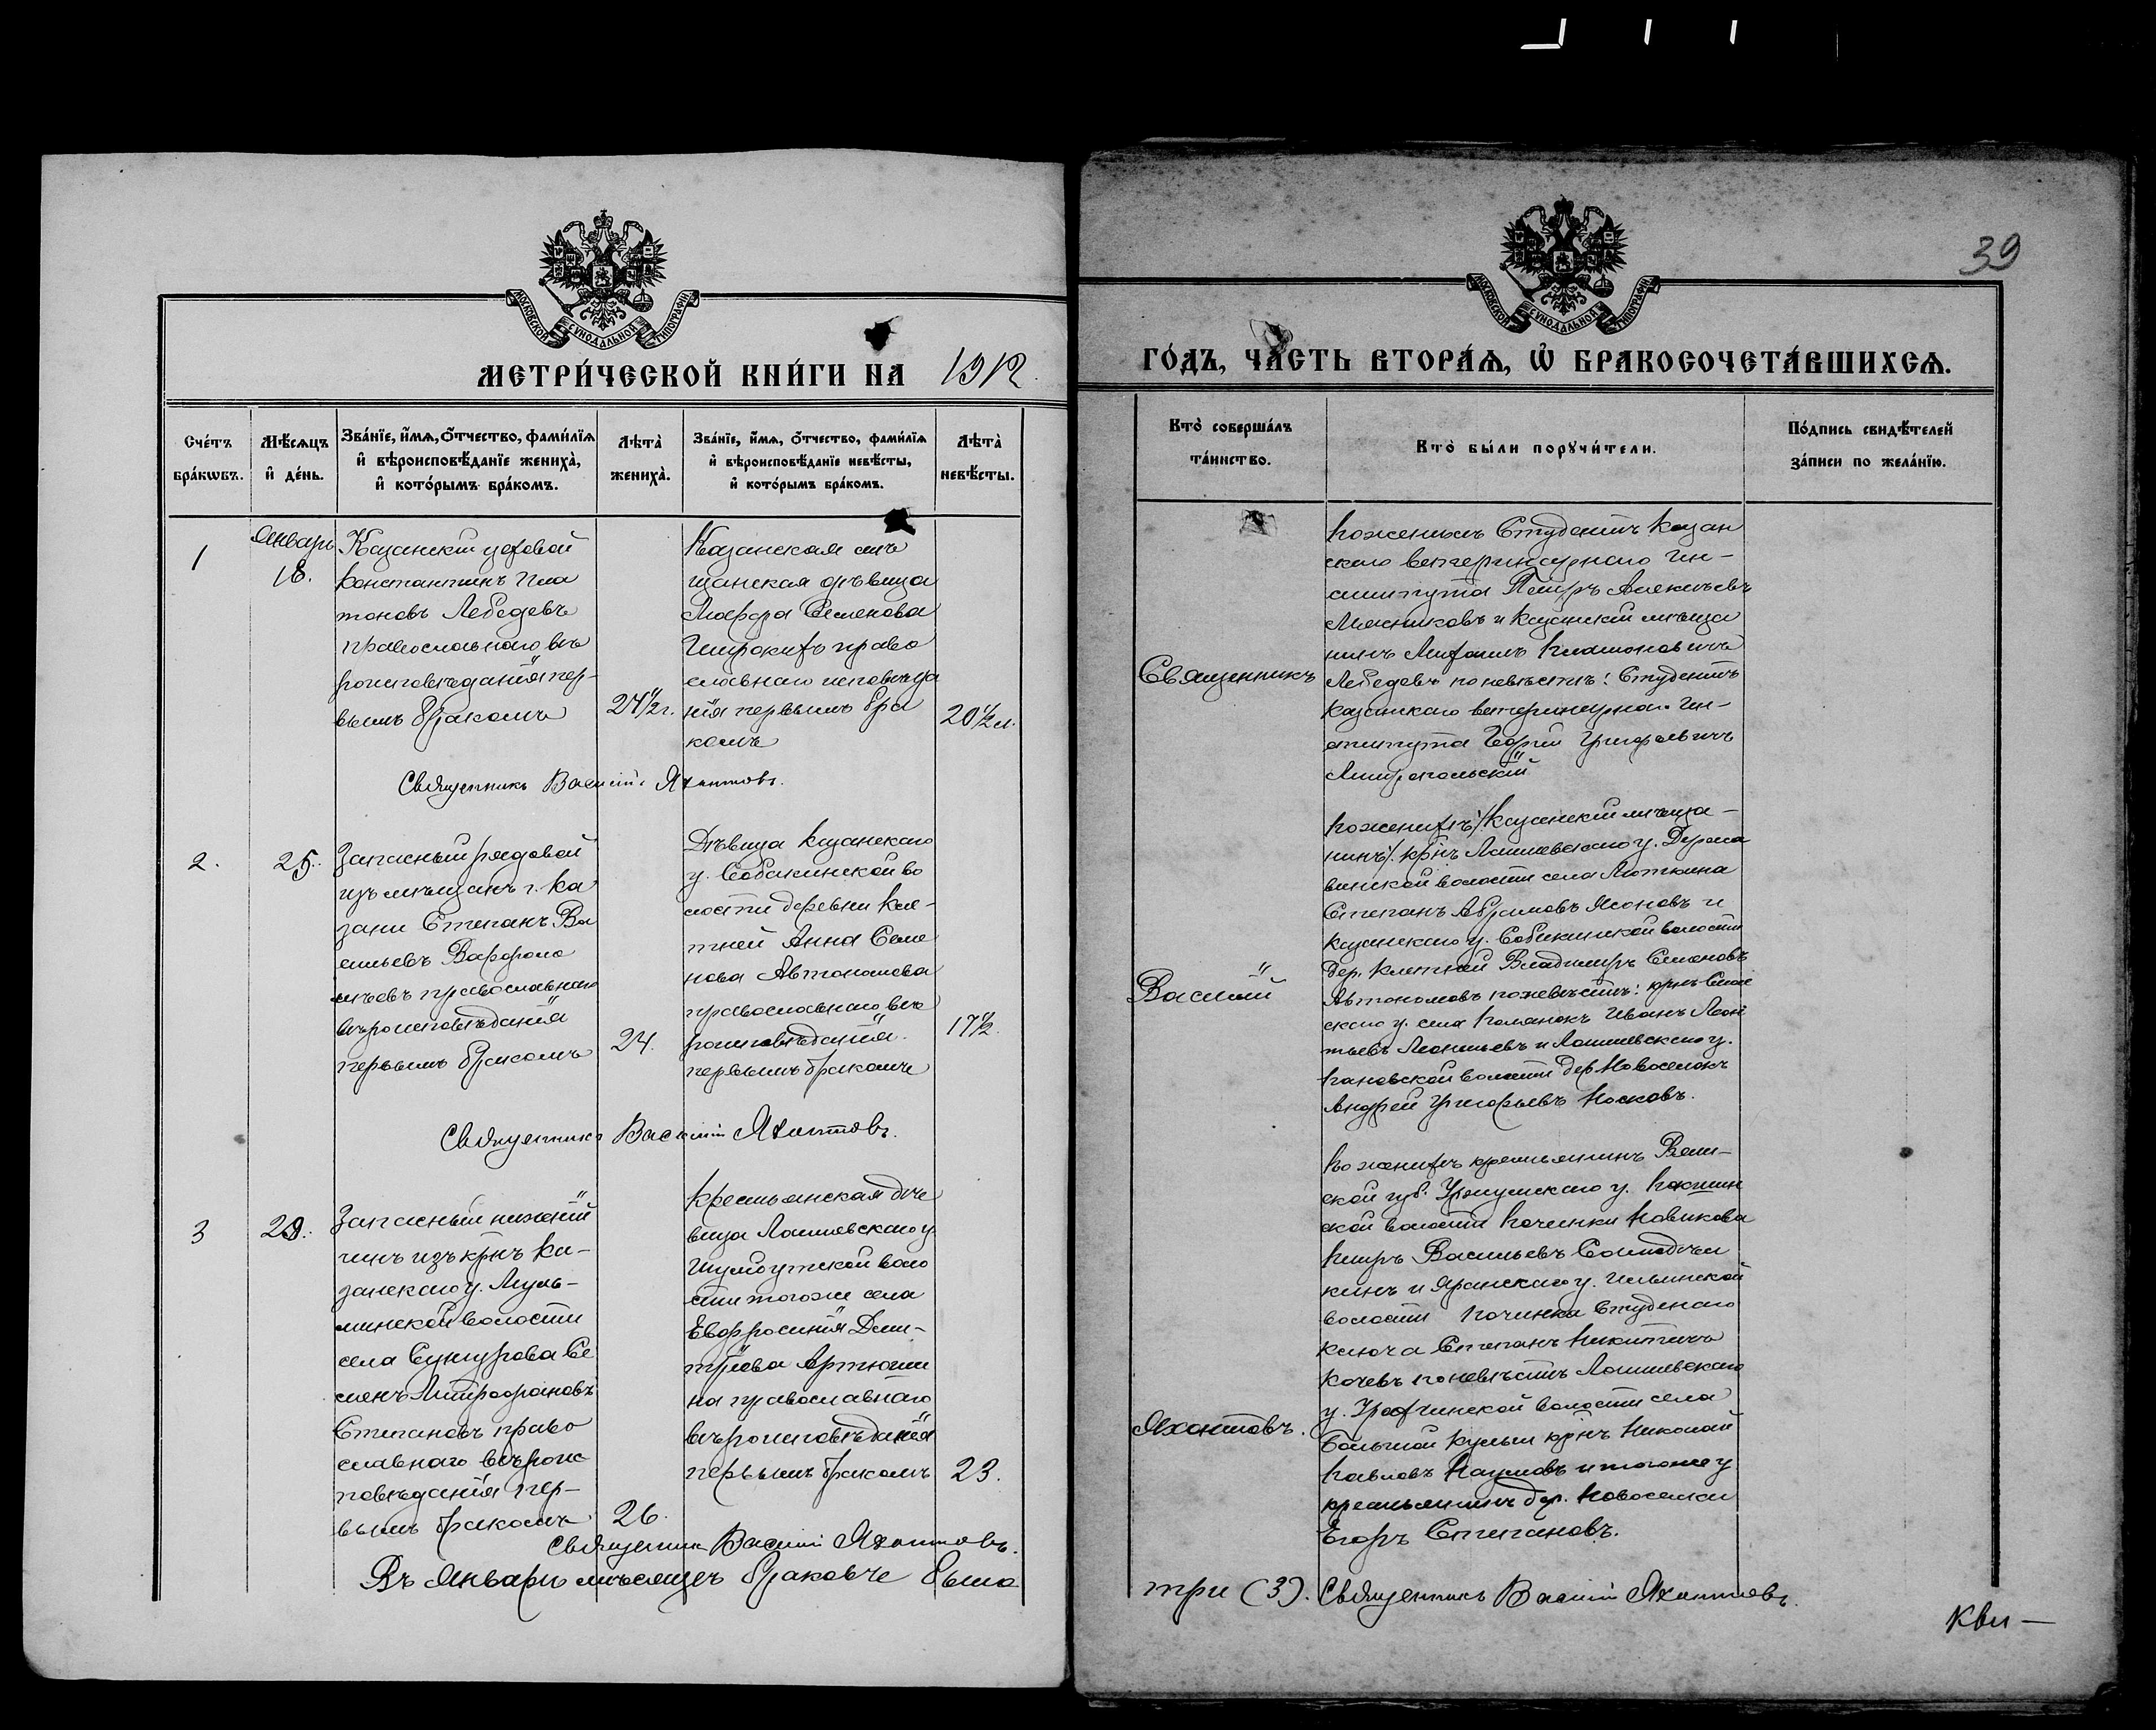 39
МОСКОВСКОЙ СѴНОДАЛЬНОЙ ТИПОГРАФІИ
МЕТРИ́ЧЕСКОЙ КНИ́ГИ НА 1912
Сче́тъ бра́кѡвъ.
Мѣ́сяцъ и҆ де́нь.
Зва́нїе, и҆́мѧ, ѻ҆́тчество, фами́лїѧ
и҆ вѣроисповѣ́данїе жениха̀,
и҆ кото́рымъ бра́комъ.
Лѣта̀ жениха̀.
Зва́нїе, и҆́мѧ, ѻ҆́тчество, фами́лїѧ
и҆ вѣроисповѣ́данїе невѣ́сты,
и҆ кото́рымъ бра́комъ.
Лѣта̀ невѣ́сты.
1
Январь
18.
Казанскій цеховой
Константинъ Пла
тоновъ Лебедевъ
православнаго вѣ
роисповѣданія пер-
вымъ бракомъ
24½ г.
Казанская мѣ
щанская дѣвица
Марфа Семенова
Широкихъ право
славнаго исповѣда
нія первымъ бра
комъ
20½ л.
Священникъ Василій Яхонтовъ.
2.
25.
Запасный рядовой
изъ мѣщанъ г. Ка
зани Степанъ Ва
сильевъ Варфоло
мѣевъ православнаго
вѣроисповѣданія
первымъ бракомъ
24.
Дѣвица Казанскаго
у. Собакинской во
лости деревни Кле-
тней Анна Семе
нова Автономова
православнаго вѣ
роисповѣданія
первымъ бракомъ
17½
Священникъ Василій Яхонтовъ.
3
29.
Запасный нижній
чинъ изъ крнъ Ка-
занскаго у. Муль-
минской волости
села Сунчурова Се
менъ Митрофановъ
Степановъ право
славнаго вѣроис
повѣданія пер-
вымъ бракомъ
26.
Крестьянская дѣ
вица Лаишевскаго у.
Шумбутской воло
сти тогоже села
Евфросинія Дми-
тріева Артюши
на православнаго
вѣроисповѣданія
первымъ бракомъ
23.
Священникъ Василій Яхонтовъ.
Въ Январи мѣсяцѣ браковъ было
ГО́ДЪ, ЧА́СТЬ ВТОРА́Ѧ, Ѡ҆ БРАКОСОЧЕТА́ВШИХСѦ.
МОСКОВСКОЙ СѴНОДАЛЬНОЙ ТИПОГРАФІИ
Кто̀ соверша́лъ
та́инство.
Кто̀ бы́ли порꙋчи́тели.
По́дпись свидѣ́телей
за́писи по жела́нїю.
Священникъ
Василій
Яхонтовъ.
По женихѣ Студентъ Казан
скаго ветеринарнаго Ин-
ститута Петръ Алексѣевъ
Мясниковъ и Казанскій мѣща
нинъ Платоновичъ
Лебедевъ по невѣстѣ: Студентъ
Казанскаго ветеринарнаго Ин-
ститута Георгій Григорьевичъ
По женихѣ: Казанскій мѣща-
нинъ крнъ Лаишевскаго у. Держа
винской волости села
Степанъ Абрамовъ Леоновъ и
Казанскаго у. Собакинской волости
дер. Клетней Владимиръ Семеновъ
Автономовъ по невѣстѣ: крнъ Спас
скаго у. села Полянокъ Иванъ Леон
тьевъ Леонтьевъ и Лаишевскаго у.
Пановской волости дер. Новоселокъ
Андрей Григорьевъ Носковъ.
По женихѣ крестьянинъ Вят-
ской губ. Уржумскаго у.
ской волости починка Новикова
Петръ Васильевъ
кинъ и Яранскаго у. Ильинской
волости починка Студенаго
Ключа Степанъ Никитинъ
Кочевъ по невѣстѣ Лаишевскаго
у. волости села
Большой Кульги крнъ Николай
Павловъ Наумовъ и тогоже у
крестьянинъ дер. Новоселки
Егоръ Степановъ.
три (3). Священникъ Василій Яхонтовъ.